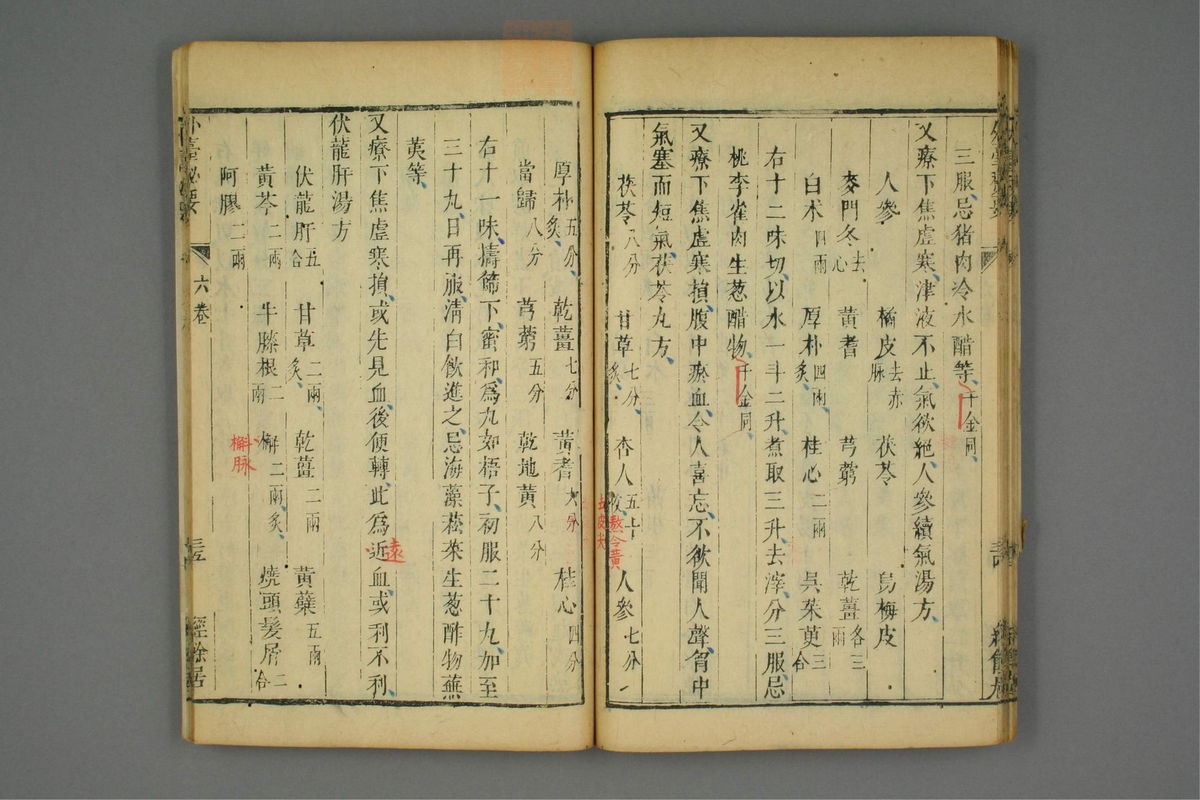 三服忌猪肉冷水醋等千金同
又療下焦虛寒津液不止氣欲絕人參續氣湯方
人參 橘皮去赤脉 茯苓 烏梅皮
麥門冬去心 黃耆 芎藭 乾薑各三兩
白术四兩 厚朴四兩炙 桂心二兩 吳茱萸三合
右十二味切以水一斗二升煮取三升去滓分三服忌
桃李雀肉生葱醋物千金同
又療下焦虛寒損腹中瘀血令人喜忘不欲聞人聲胷中
氣塞而短氣茯苓丸方
茯苓八分 甘草七分炙 杏人五十 人參七分
熬令黃
去皮尖
厚朴五分炙 乾薑七分 黃耆六分 桂心四分
當歸八分 芎藭五分 乾地黃八分
右十一味擣篩下蜜和為丸如梧子初服二十丸加至
三十丸日再服清白飲進之忌海藻菘菜生葱酢物蕪
荑等
又療下焦虛寒損或先見血後便轉此為近血或利不利
遠
伏龍肝湯方
伏龍肝五合 甘草二兩炙 乾薑二兩 黃蘗五兩
黃芩二兩 牛膝根二兩 槲二兩炙 燒頭髮屑二合
槲脉
阿膠二兩
外臺秘要 六卷 經餘居